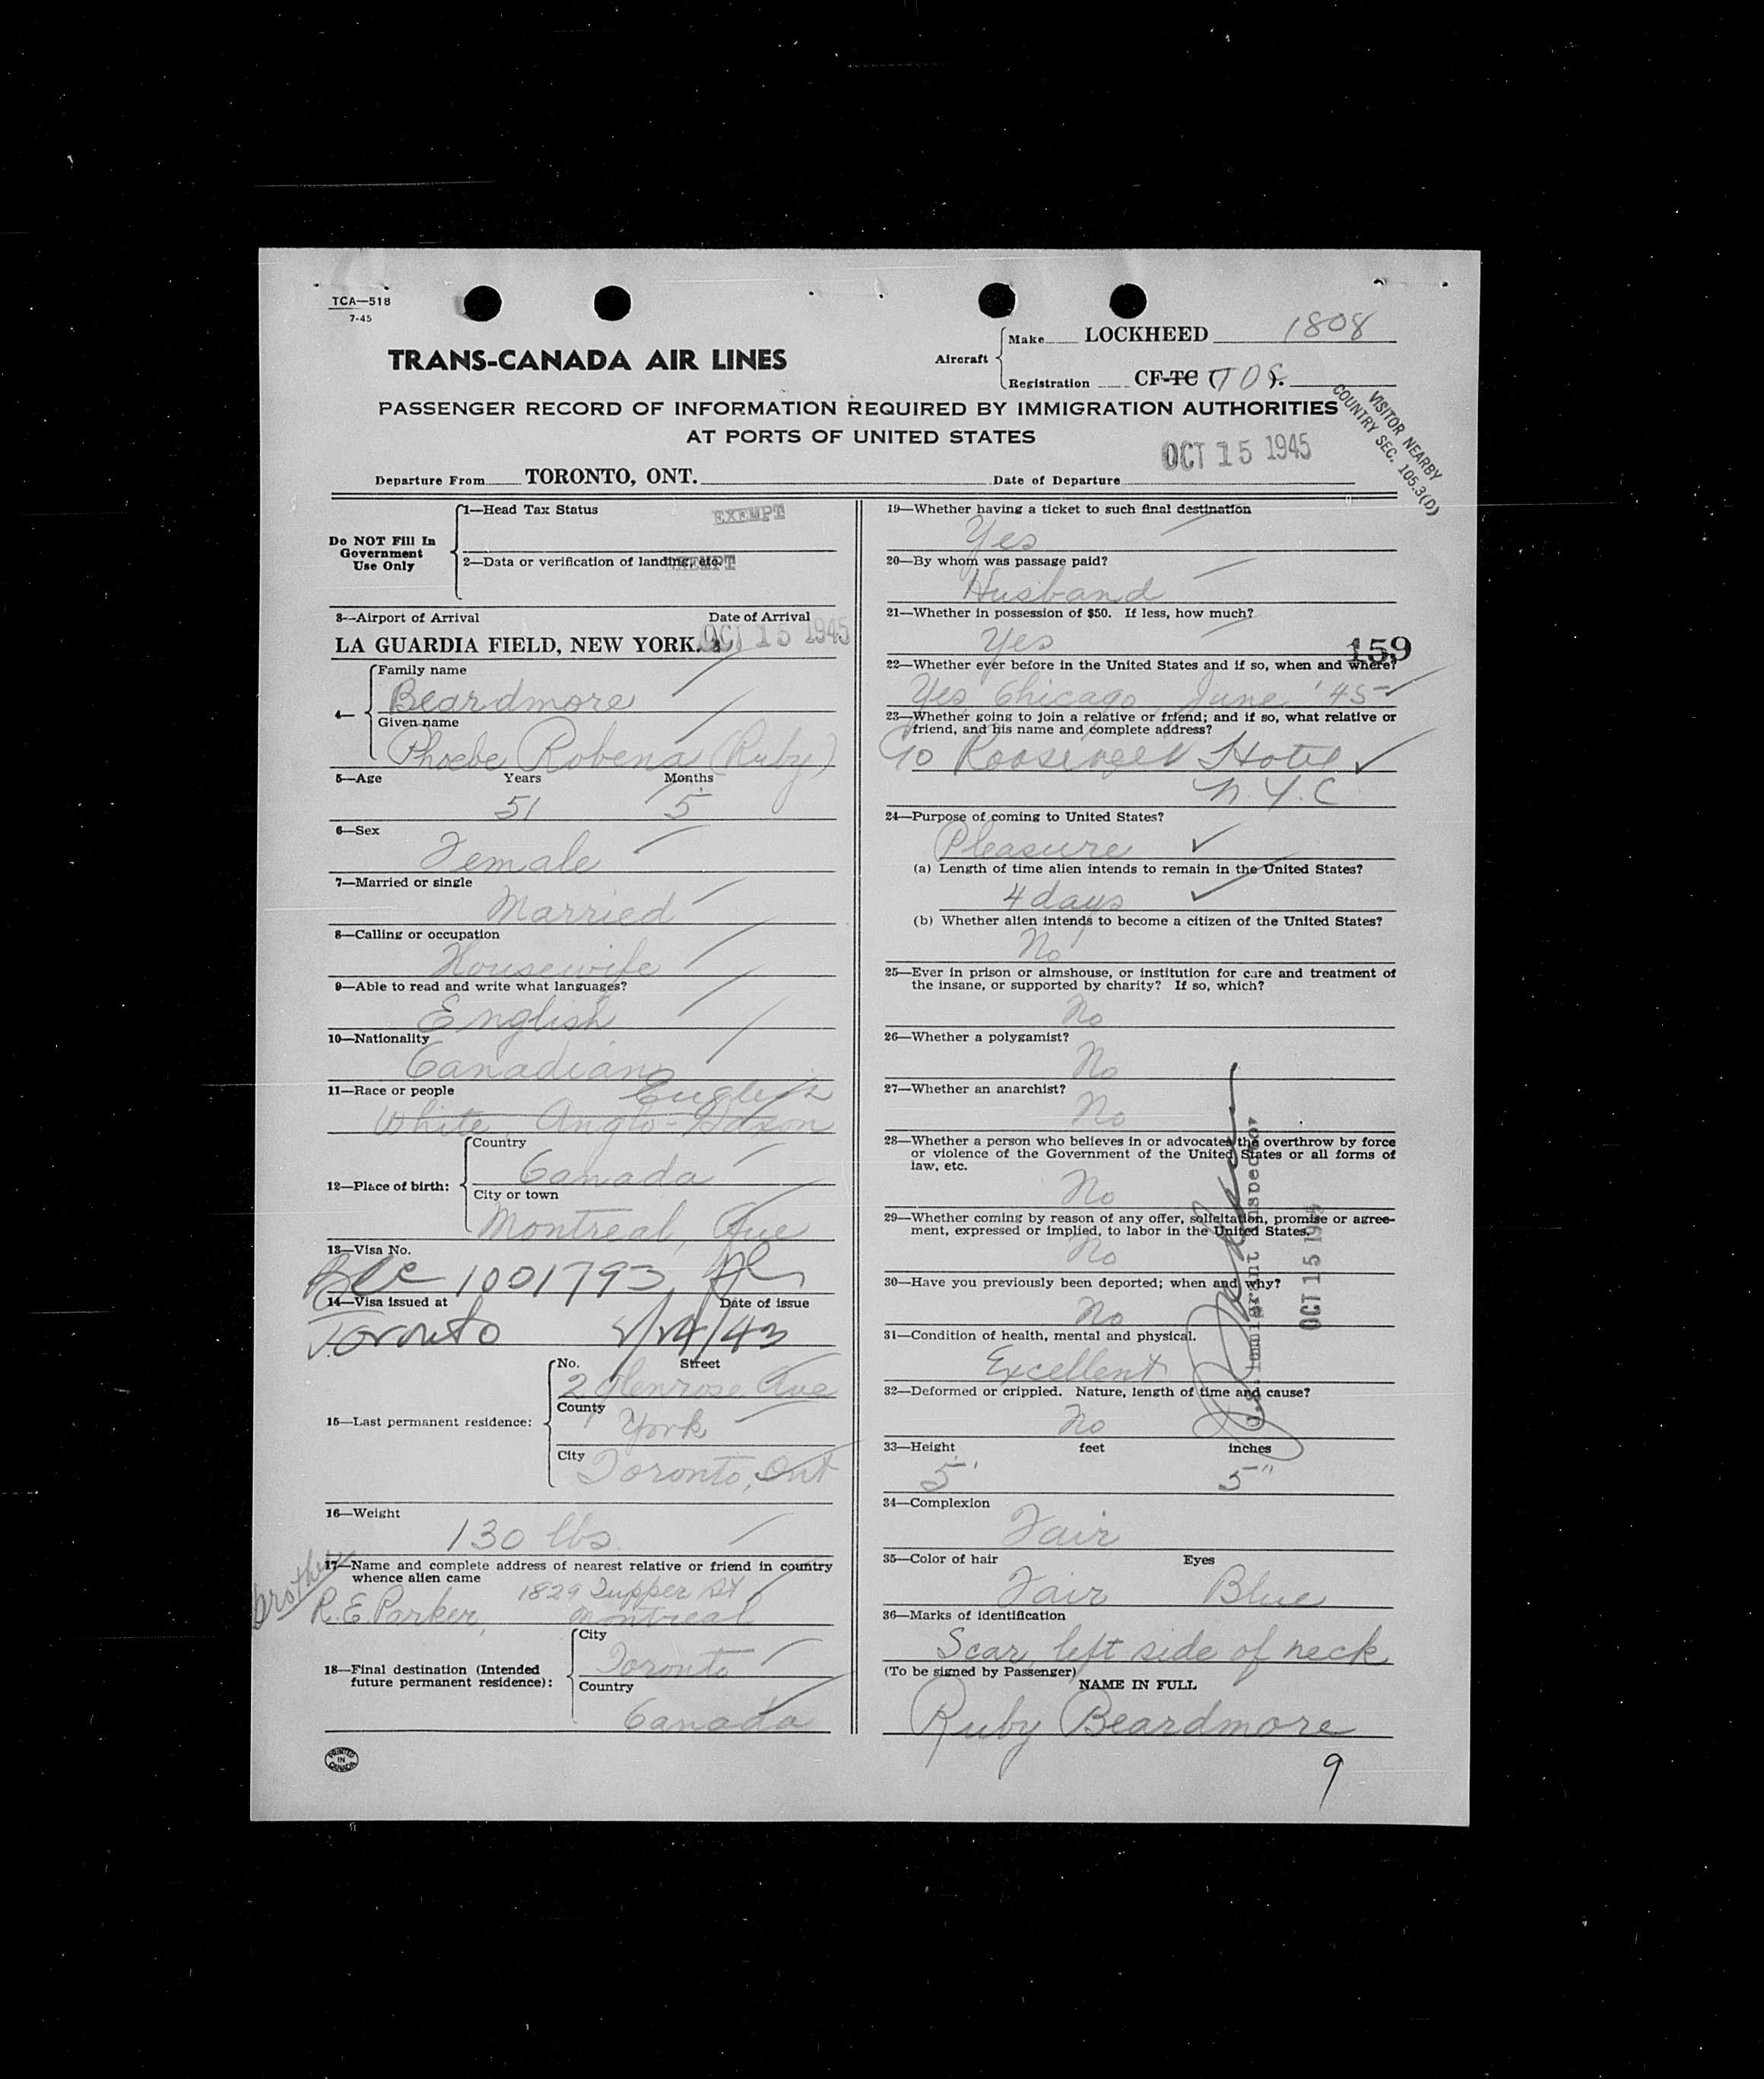 TCA—518
7-45
TRANS-CANADA AIR LINES
Aircraft
Make LOCKHEED 1808
Registration CF-TC ( ).
PASSENGER RECORD OF INFORMATION REQUIRED BY IMMIGRATION AUTHORITIES
AT PORTS OF UNITED STATES
VISITOR NEARBY
COUNTRY SEC. 105.3(D)
Departure From TORONTO, ONT. Date of Departure OCT 15 1945
Do NOT Fill In
Government
Use Only
1—Head Tax Status EXEMPT
2—Data or verification of landing, etc. EXEMPT
3—Airport of Arrival Date of Arrival
LA GUARDIA FIELD, NEW YORK. OCT 15 1945
4—
Family name
Beardmore
Given name
Phoebe Robena (Ruby)
5—Age Years Months
51 5
6—Sex
Female
7—Married or single
Married
8—Calling or occupation
Housewife
9—Able to read and write what languages?
English
10—Nationality
Canadian
11—Race or people English
White, Anglo-Saxon
12—Place of birth:
Country
Canada
City or town
Montreal, Que
13—Visa No.
1001793
14—Visa issued at Date of issue
Toronto /43
15—Last permanent residence:
No. Street
2 Glenrose Ave
County
York
City
Toronto, Ont
16—Weight
130 lbs.
17—Name and complete address of nearest relative or friend in country
whence alien came
brother
R.E. Parker, 1829 Tupper St
Montreal
18—Final destination (Intended
future permanent residence):
City
Toronto
Country
Canada
PRINTED
IN
CANADA
19—Whether having a ticket to such final destination
Yes
20—By whom was passage paid?
Husband
21—Whether in possession of $50. If less, how much?
Yes
159
22—Whether ever before in the United States and if so, when and where?
Yes, Chicago June '45
23—Whether going to join a relative or friend; and if so, what relative or
friend, and his name and complete address?
Hotel
N.Y.C
24—Purpose of coming to United States?
Pleasure
(a) Length of time alien intends to remain in the United States?
4 days
(b) Whether alien intends to become a citizen of the United States?
No
25—Ever in prison or almshouse, or institution for care and treatment of
the insane, or supported by charity? If so, which?
No
26—Whether a polygamist?
No
27—Whether an anarchist?
No
28—Whether a person who believes in or advocates the overthrow by force
or violence of the Government of the United States or all forms of
law, etc.
No
29—Whether coming by reason of any offer, solicitation, promise or agree-
ment, expressed or implied, to labor in the United States.
No
30—Have you previously been deported; when and why?
No
U.S. Immigrant Inspector
OCT 15 1945
31—Condition of health, mental and physical.
Excellent
32—Deformed or crippled. Nature, length of time and cause?
No
33—Height feet inches
5' 5"
34—Complexion
Fair
35—Color of hair Eyes
Fair Blue
36—Marks of identification
Scar, left side of neck
(To be signed by Passenger)
NAME IN FULL
Ruby Beardmore
9